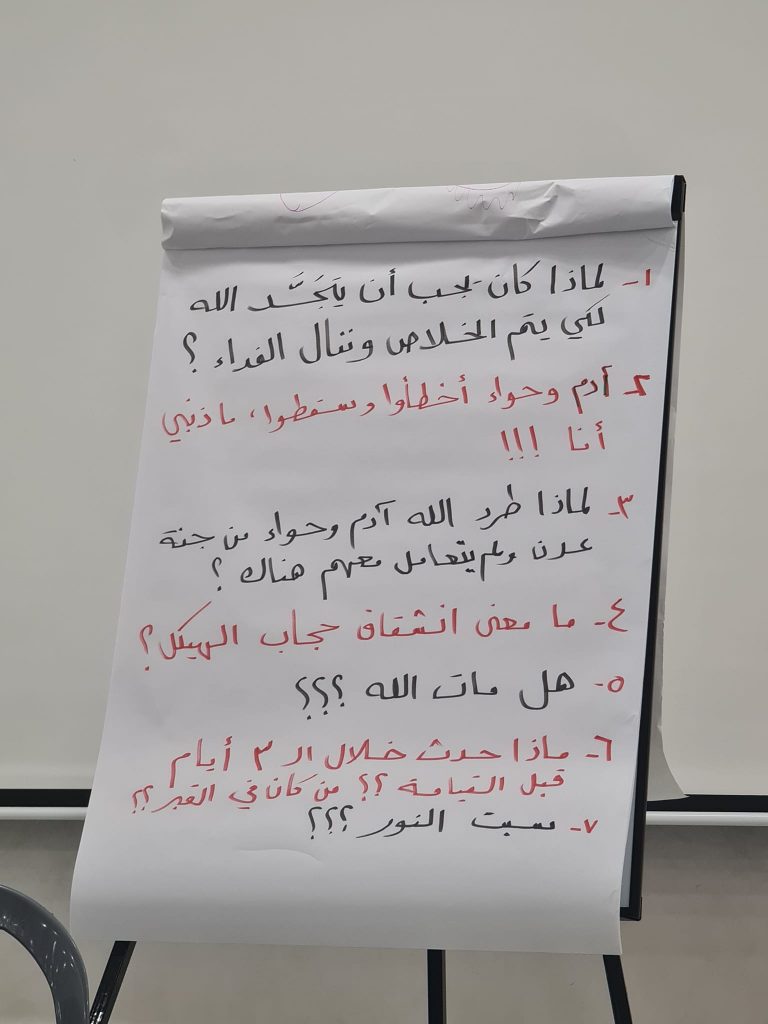 ١- لماذا كان يجب أن يتَجَسَّد الله
لكي يتم الخلاص وننال الفداء ؟
٢- آدم وحواء أخطأوا وسقطوا، ما ذنبي
أنا !!!
٣- لماذا طرد الله آدم وحواء من جنة
عدن ولم يتعامل معهم هناك ؟
٤- ما معنى انشقاق حجاب الهيكل؟
٥- هل مات الله ؟؟؟
٦- ماذا حدث خلال الـ ٣ أيام
قبل القيامة ؟؟ من كان في القبر ؟؟
٧- سبت النور ؟؟؟